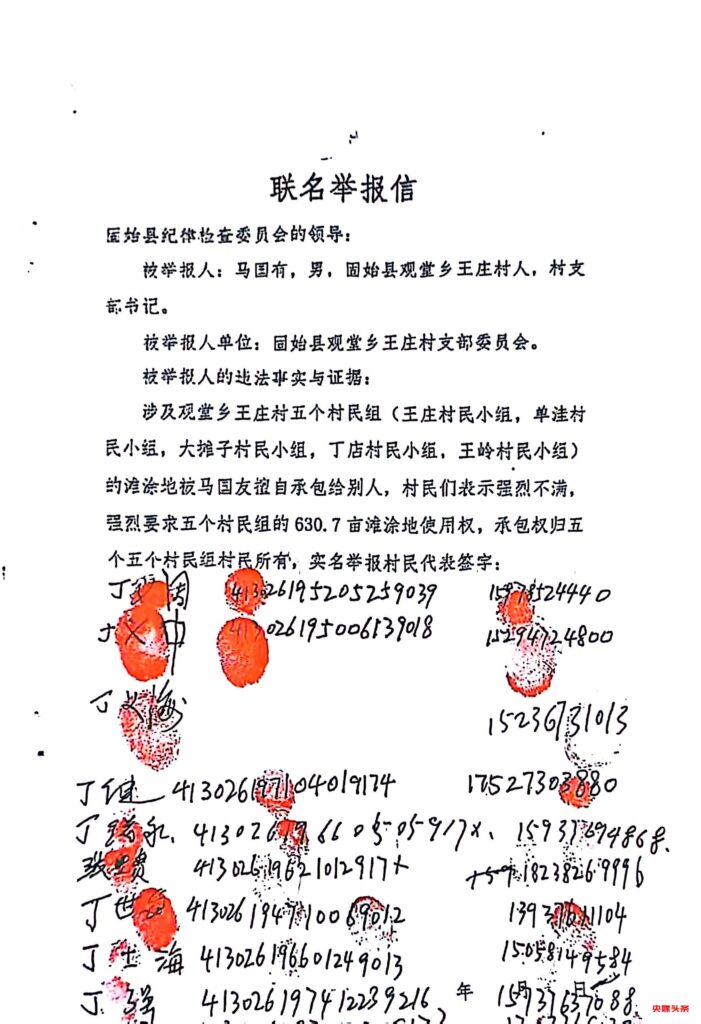 联名举报信
固始县纪律检查委员会的领导：
被举报人：马国有，男，固始县观堂乡王庄村人，村支
部书记。
被举报人单位：固始县观堂乡王庄村支部委员会。
被举报人的违法事实与证据：
涉及观堂乡王庄村五个村民组（王庄村民小组，单洼村
民小组，大摊子村民小组，丁店村民小组，王岭村民小组）
的滩涂地被马国友擅自承包给别人，村民们表示强烈不满，
强烈要求五个村民组的 630.7 亩滩涂地使用权，承包权归五
个五个村民组村民所有，实名举报村民代表签字：
丁
丁义中 15294724800
丁义海 15236731013
丁健 413026197104019174 17527303880
丁
41302619621012917x 18238269996
丁世 13937611104
丁士海 413026196601249013 15058149584
丁强 413026197412239216 年 月 日
央媒头条